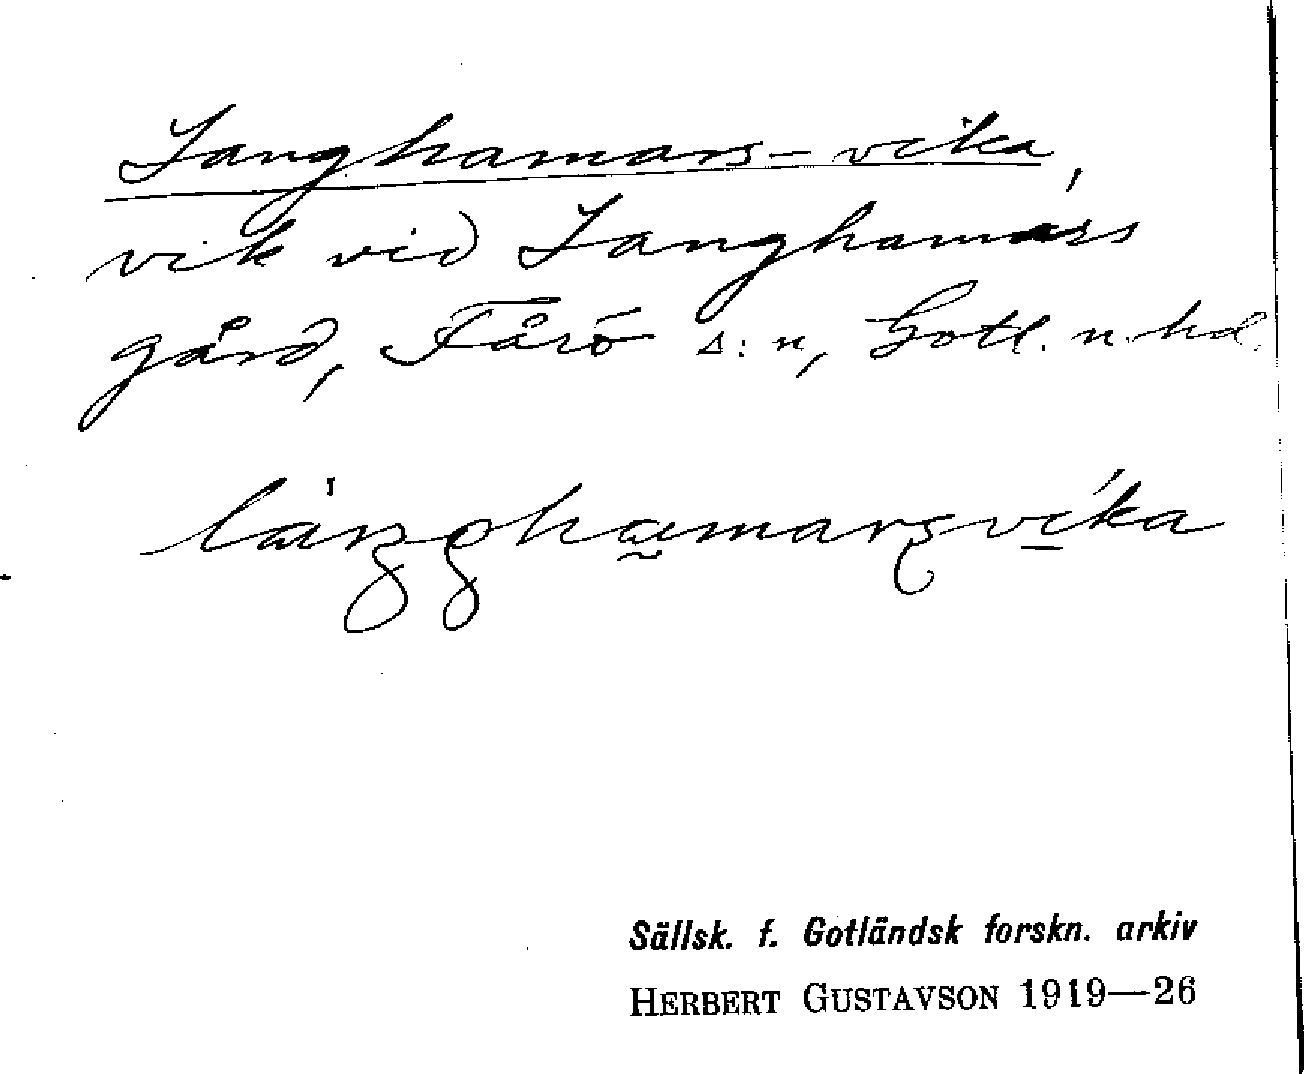 Langhamars-vika,
vik vid Langhamars
gård, Fårö s:n, Gotl. n. hd.
Sällsk. f. Gotländsk forskn. arkiv
HERBERT GUSTAVSON 1919—26